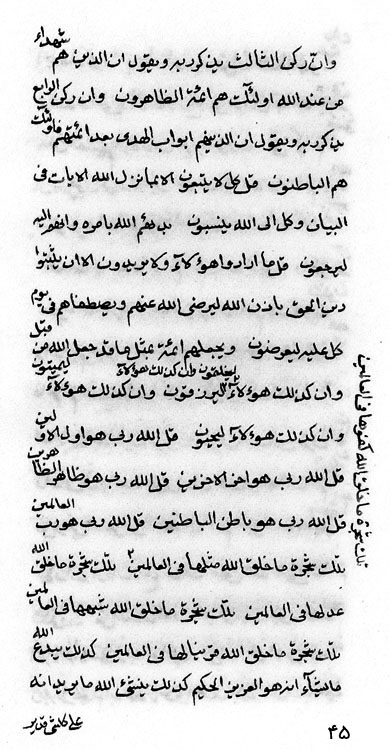 شهداء
وان ركن الثالث يذكر به ويقول ان الذين هم
من عند الله اولئك هم ائمة الظاهرون وان ركن الرابع
يذكر به ويقول ان الذينهم ابواب الهدى بعد ائمتهم فاولئك
هم الباطنون قل كل لا يتبعون الا بما نزل الله الايات فى
البيان وكل الى الله ينسبون يدئهم الله بامره وانهم اليه
ليرجعون قل ما ارادوا هؤلاء ولا يريدون الا ان يثبتوا
دين الحق باذن الله ليرضى الله عنهم ويصطفاهم فى يوم
كل عليه ليعرضون ويجعلهم ائمة بمثل ما قد جعل الله من قبل
وان كذلك هؤلاء ليرزقون وان كذلك هؤلاء ليميتون
ليخلقون وان كذلك هؤلاء
وان كذلك هؤلاء ليحيون قل الله ربى هو اول الاولين
قل الله ربى هو اخر الاخرين قل الله ربى هو ظاهر الظاهرين
قل الله ربى هو باطن الباطنين قل الله ربى هو رب العالمين
تلك شجرة ما خلق الله مثلها فى العالمين تلك شجرة ما خلق الله
عدلها فى العالمين تلك شجرة ما خلق الله شبهها فى العالمين
تلك شجرة ما خلق الله قرينا لها فى العالمين كذلك يبدع الله
ما يشاء انه هو العزيز الحكيم كذلك ينشئ الله ما يريد انه
على كلشئ قدير
تلك شجرة ما خلق الله كفوها فى العالمين
۴۵